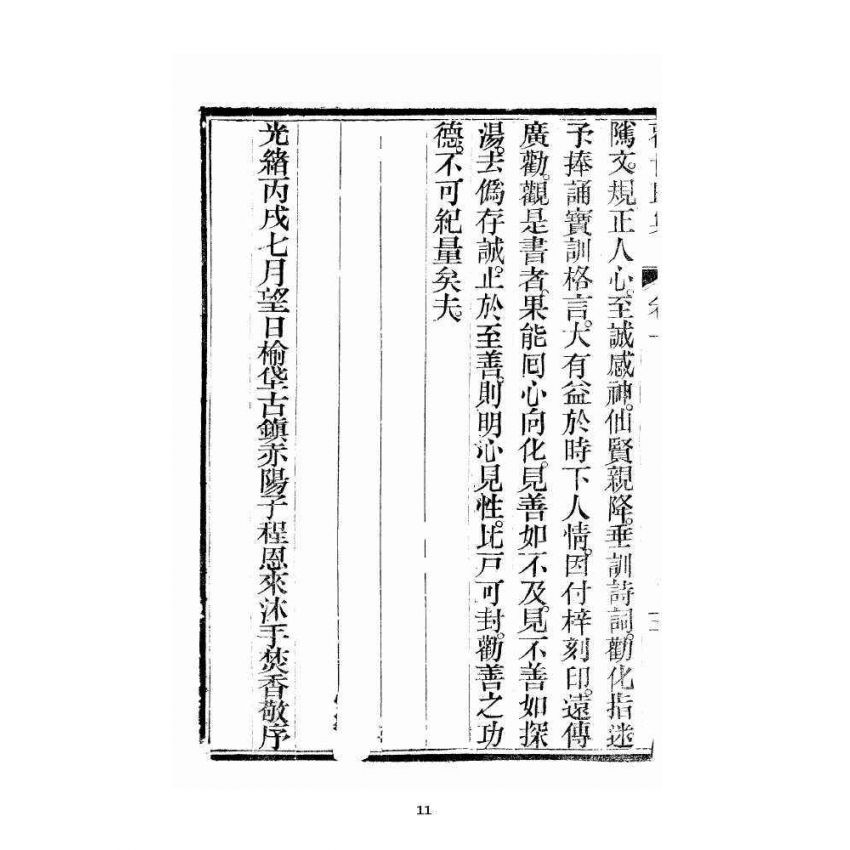 隲文。規正人心。至誠感神。仙賢親降。垂訓詩詞。勸化指迷
予捧誦寶訓格言。大有益於時下人情。因付梓刻印。遠傳
廣勸。觀是書者。果能囘心向化。見善如不及。見不善如探
湯。去僞存誠。止於至善。則明心見性。比戸可封。勸善之功
德。不可紀量矣夫。
光緒丙戌七月望日榆垡古鎮赤陽子程恩來沐手焚香敬序
11